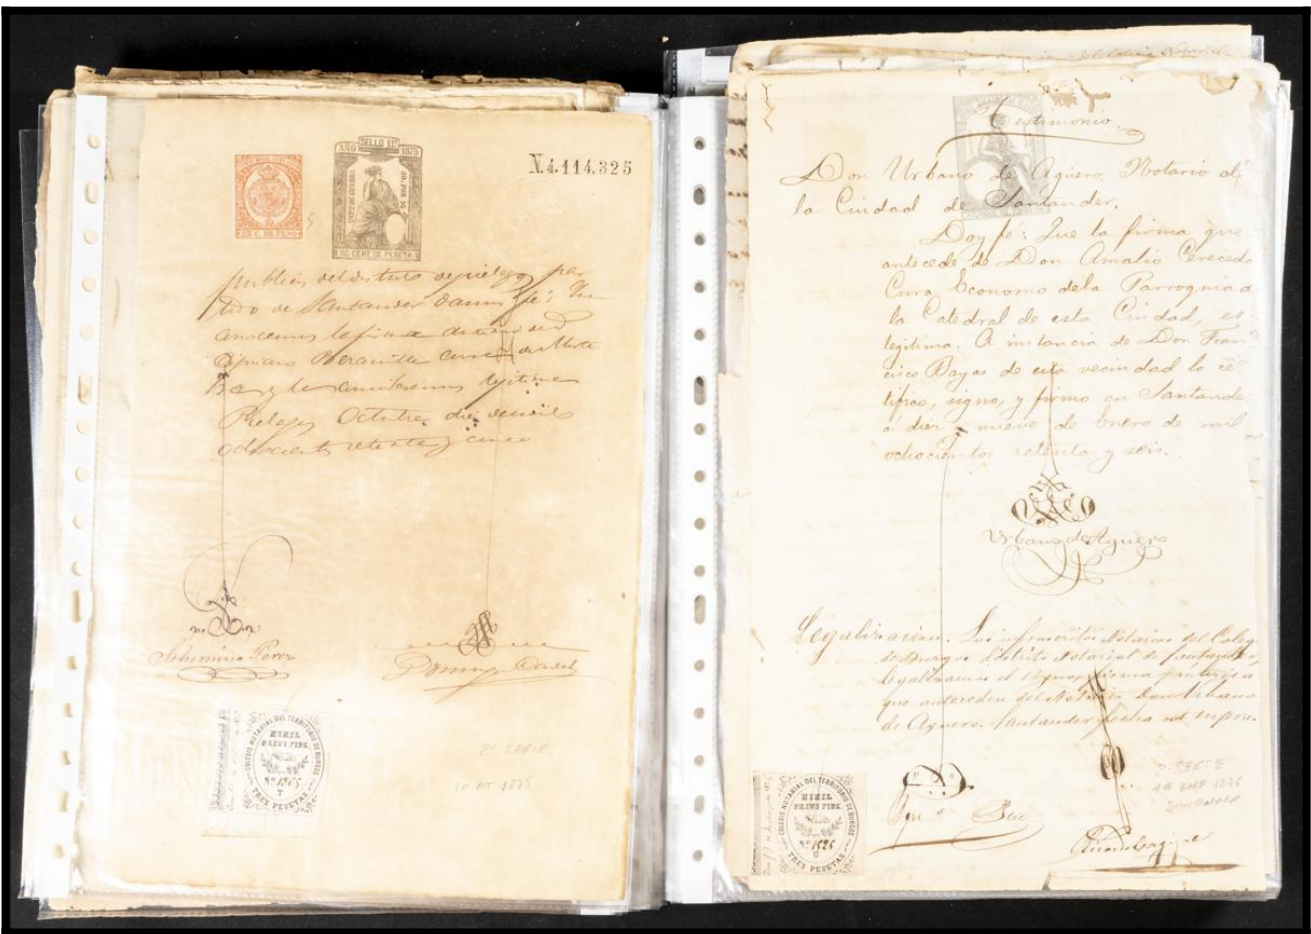 AÑO SELLO 11º 1875
N.4.114.325
25 C. DE PESO
50 CENT. DE PESETA
publicos del distrito de pielagos par
tido de Santander damos fé: Que
conocemos la firma
Cipriano
legitima
Pielagos Octubre diez de mil
ochocientos setenta y cinco
Perez
COLEGIO NOTARIAL DEL TERRITORIO DE BURGOS
NIHIL
PRIUS FIDE
Nº 1865
T
TRES PESETAS
2ª SERIE
10 OCT 1875
Testimonio
Don Urbano de Agüero, Notario de
la Ciudad de Santander.
Doy fé: Que la firma que
antecede de Don Amalio Cereceda
Cura Economo dela Parroquia de
la Catedral de esta Ciudad, es
legitima. A instancia de Don Fran
cisco Bayas de esta vecindad lo
tifico, signo, y firmo en Santander
a diez y nueve de Enero de mil
ochocientos setenta y seis.
Urbano de Agüero
Legalizacion. Los infrascritos Notarios del Colegio
de Burgos distrito Notarial de Santander,
legalizamos el signo, firma y rúbrica
que anteceden del Notario Don Urbano
de Agüero. Santander fecha ut supra.
2ª SERIE
19 ENE 1876
SANTANDER
COLEGIO NOTARIAL DEL TERRITORIO DE BURGOS
NIHIL
PRIUS FIDE
Nº 1526
U
TRES PESETAS